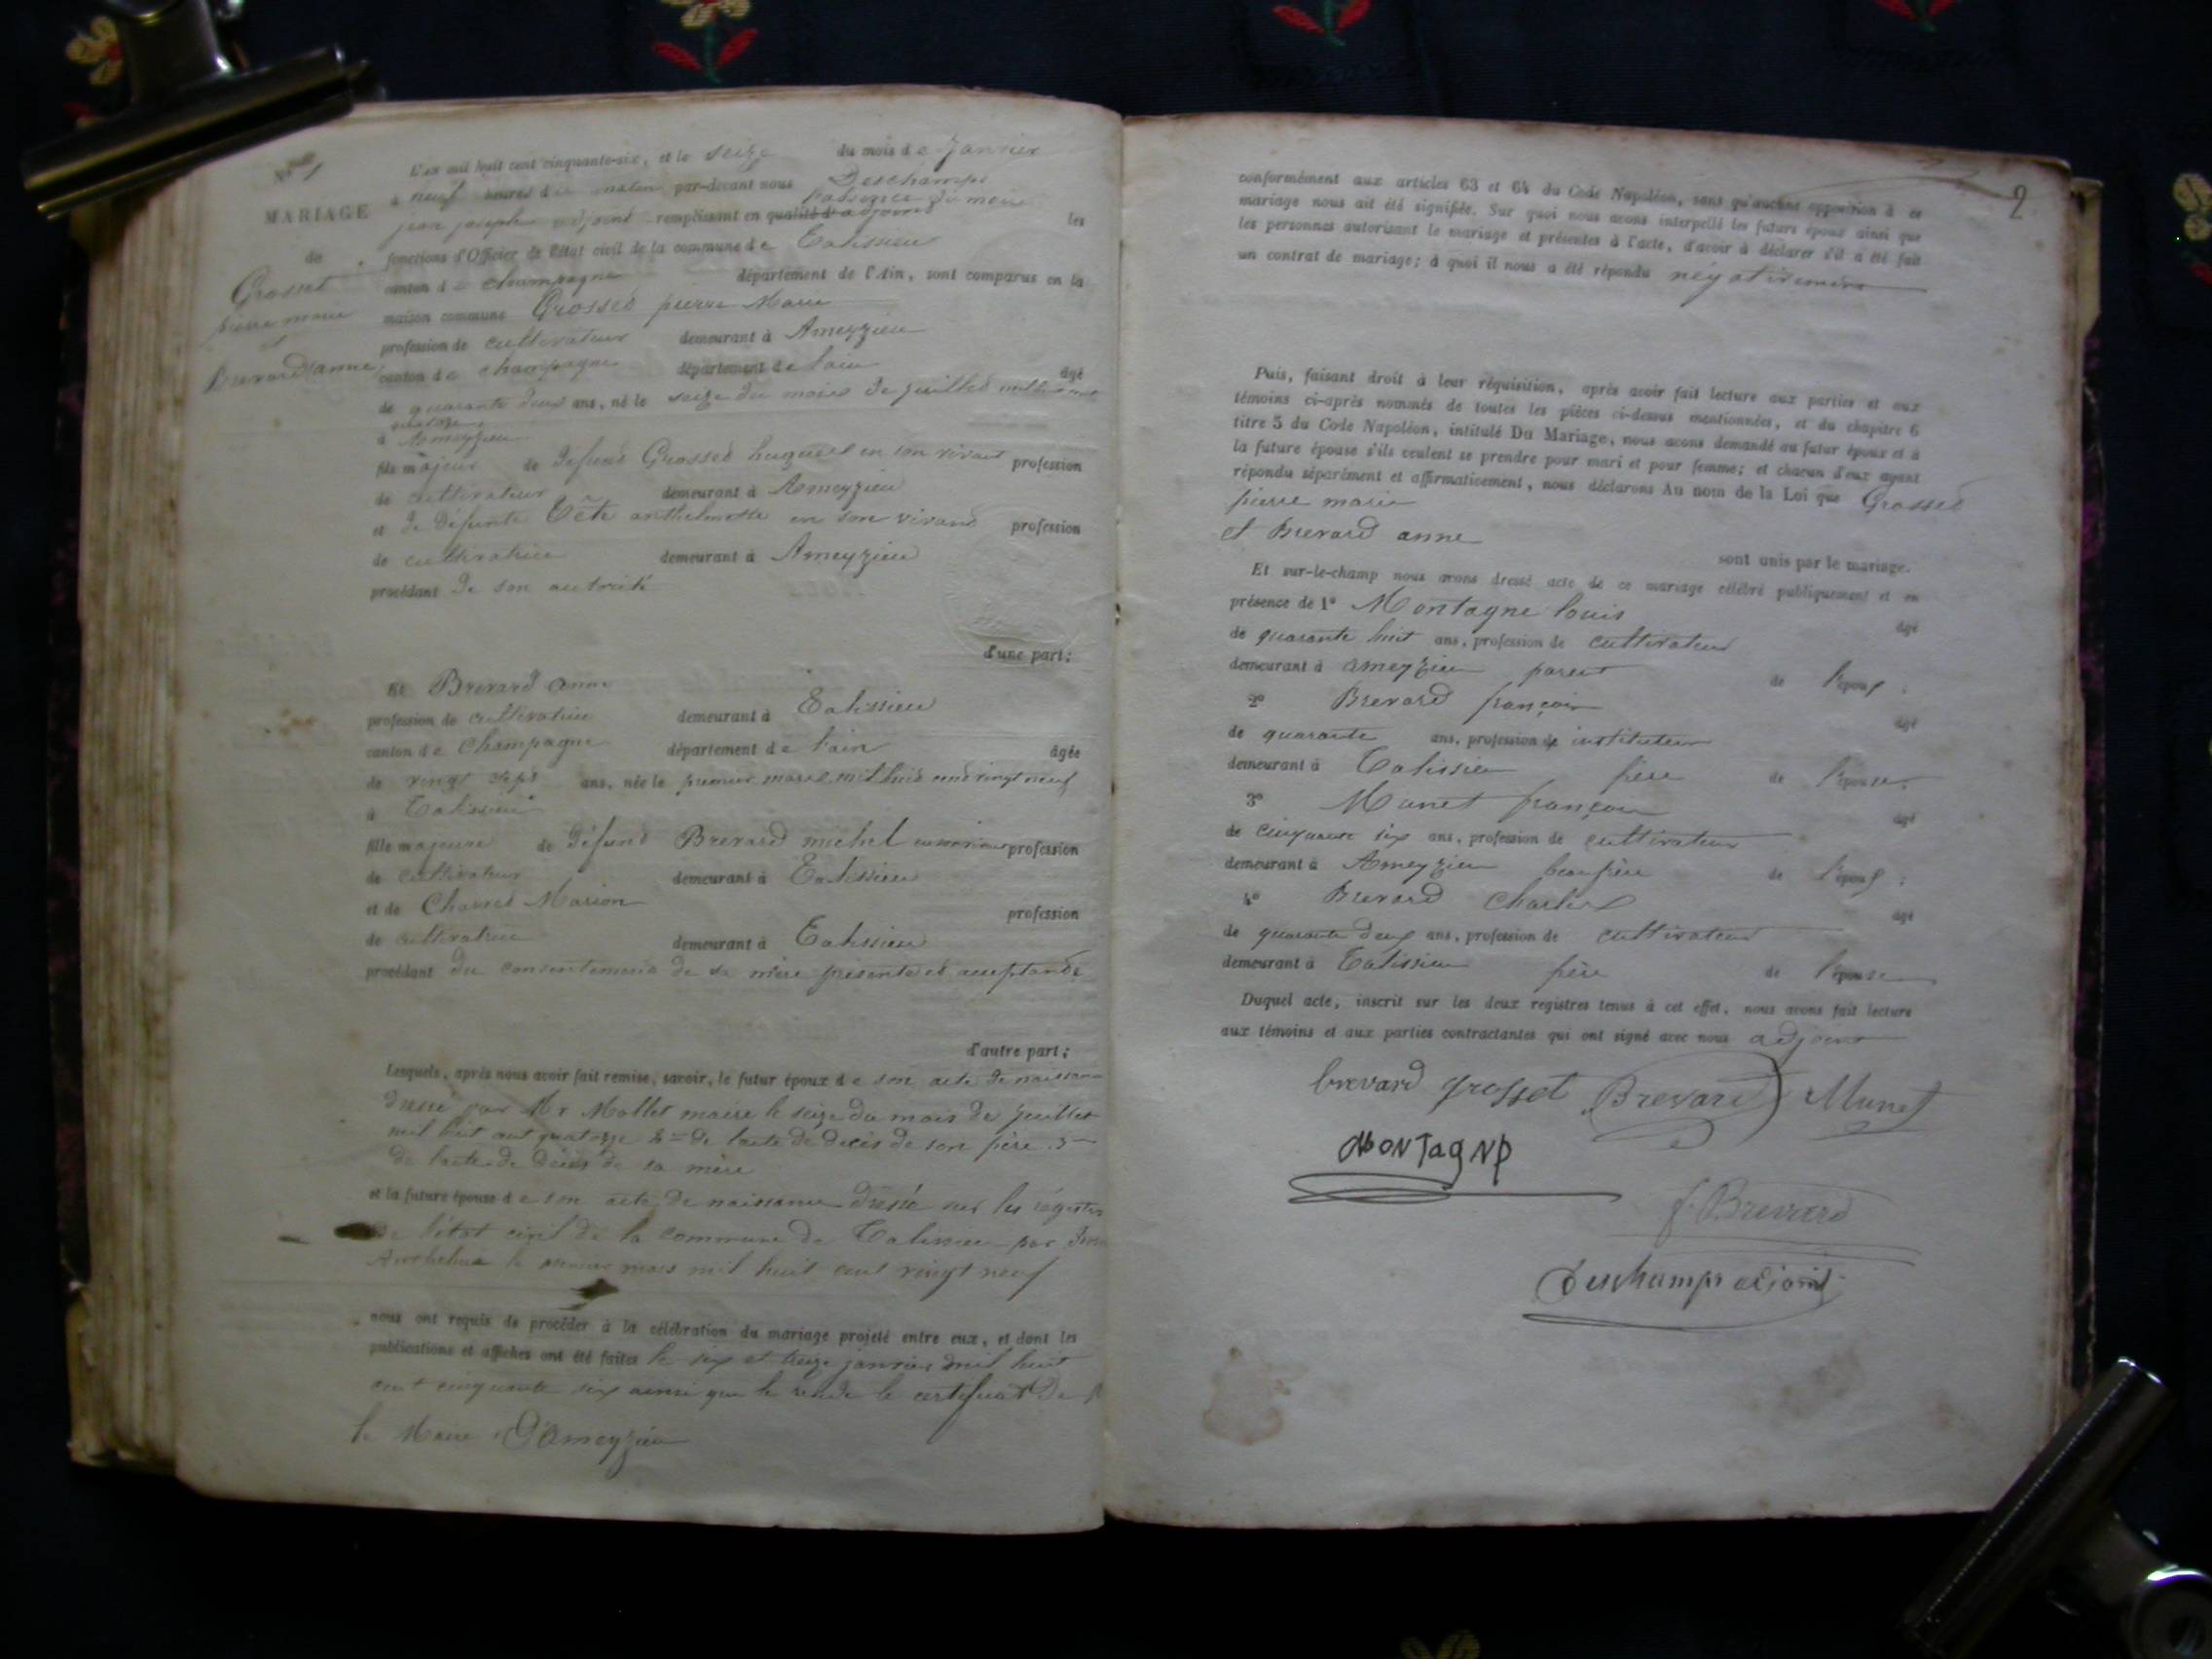 N° 1
MARIAGE
de
Grosset
pierre marie
et
Brevard anne
L'an mil huit cent cinquante-six, et le seize du mois de Janvier
à neuf heures du matin par-devant nous Deschamps
jean joseph adjoint remplissant en l'absence du maire les
fonctions d'Officier de l'état civil de la commune de Talissieu
canton de champagne département de l'Ain, sont comparus en la
maison commune Grosset pierre Marie
profession de cultivateur demeurant à Ameyzieu
canton de champagne département de l'ain âgé
de quarante deux ans, né le seize du mois de juillet mil huit cent
quatorze
à Ameyzieu
fils majeur de défunt Grosset en son vivant profession
de cultivateur demeurant à Ameyzieu
et de défunte anthelmette en son vivant profession
de cultivatrice demeurant à Ameyzieu
procédant de son autorité
d'une part;
Et Brevard anne
profession de cultivatrice demeurant à Talissieu
canton de Champagne département de l'ain âgée
de vingt sept ans, née le premier mars mil huit cent vingt neuf
à Talissieu
fille majeure de défunt Brevard michel en son vivant profession
de cultivateur demeurant à Talissieu
et de Marion profession
de cultivatrice demeurant à Talissieu
procédant du consentement de sa mère présente et acceptante
d'autre part;
Lesquels, après nous avoir fait remise, savoir, le futur époux de son acte de naissance
dressé par Mr Mollet maire le seize du mois de juillet
mil huit cent quatorze 2° de l'acte de décès de son père 3°
de l'acte de décès de sa mère
et la future épouse de son acte de naissance dressé sur les régistres
de l'état civil de la commune de Talissieu par
Anthelme le premier mars mil huit cent vingt neuf
nous ont requis de procéder à la célébration du mariage projeté entre eux, et dont les
publications et affiches ont été faites le six et treize janvier mil huit
cent cinquante six ainsi que le certificat de
le Maire D'Ameyzieu
2
conformément aux articles 63 et 64 du Code Napoléon, sans qu'aucune opposition à ce
mariage nous ait été signifiée. Sur quoi nous avons interpellé les futurs époux ainsi que
les personnes autorisant le mariage et présentes à l'acte, d'avoir à déclarer s'il a été fait
un contrat de mariage; à quoi il nous a été répondu négativement
Puis, faisant droit à leur réquisition, après avoir fait lecture aux parties et aux
témoins ci-après nommés de toutes les pièces ci-dessus mentionnées, et du chapitre 6
titre 5 du Code Napoléon, intitulé Du Mariage, nous avons demandé au futur époux et à
la future épouse s'ils veulent se prendre pour mari et pour femme; et chacun d'eux ayant
répondu séparément et affirmativement, nous déclarons Au nom de la Loi que Grosset
pierre marie
et Brevard anne
sont unis par le mariage.
Et sur-le-champ nous avons dressé acte de ce mariage célébré publiquement et en
présence de 1° Montagne louis âgé
de quarante huit ans, profession de cultivateur
demeurant à ameyzieu parent de l'époux;
2° Brevard françois âgé
de quarante ans, profession de instituteur
demeurant à Talissieu frère de l'épouse;
3° Munet françois âgé
de cinquante six ans, profession de cultivateur
demeurant à Ameyzieu beau frère de l'époux;
4° Brevard Charles âgé
de quarante deux ans, profession de cultivateur
demeurant à Talissieu frère de l'épouse
Duquel acte, inscrit sur les deux registres tenus à cet effet, nous avons fait lecture
aux témoins et aux parties contractantes qui ont signé avec nous adjoint
brevard grosset Brevard Munet
MONTagNe
f. Brevard
Deschamps adjoint